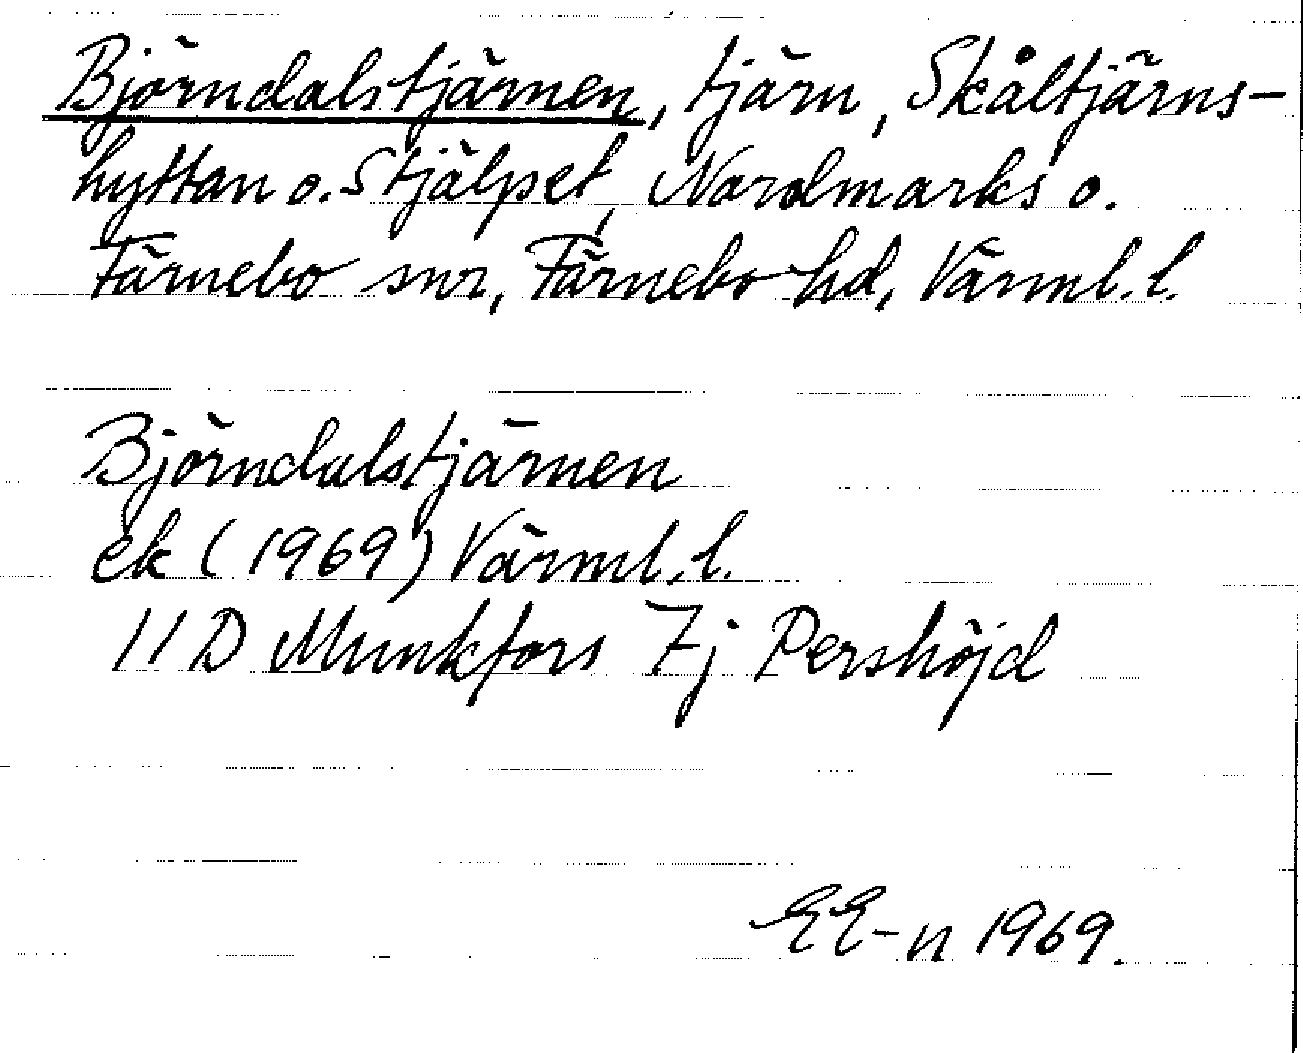 Björndalstjärnen, tjärn, Skåltjärns-
hyttan o. Stjälpet, Nordmarks o.
Färnebo snr, Färnebo hd, Värml. l.
Björndalstjärnen
ek (1969) Värml. l.
11 D Munkfors 7j Pershöjd
EE-n 1969.